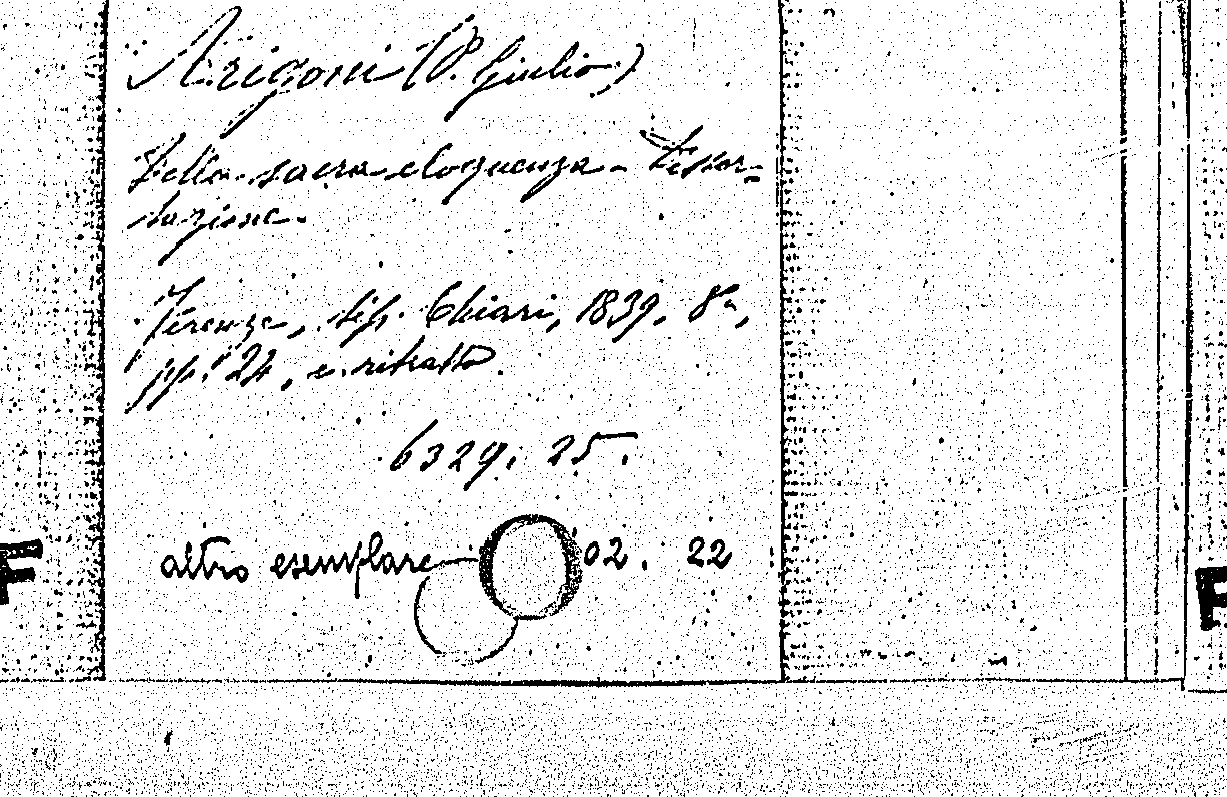 Arigoni (P. Giulio)
Della sacra eloquenza - Disser-
tazione.
Firenze, tip. Chiari, 1839, 8°,
pp. 24, e. ritratto.
6329. 25.
altro esemplare 02. 22
F
F